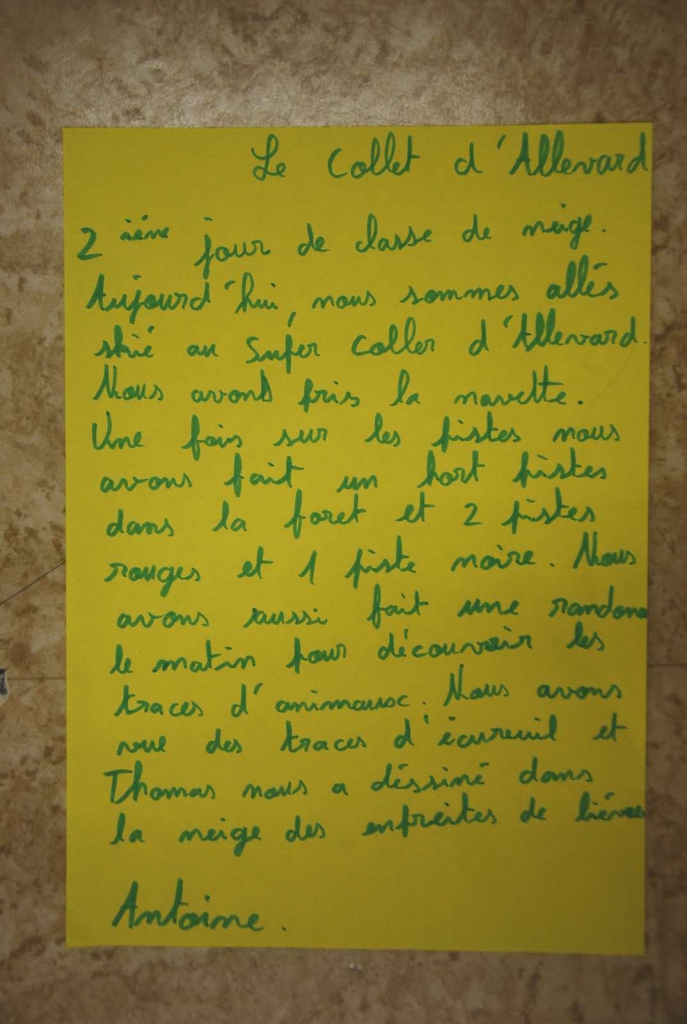 Le Collet d'Allevard
2 ième jour de classe de neige.
Aujourd'hui, nous sommes allés
skié au Super Coller d'Allevard.
Nous avons pris la navette.
Une fois sur les pistes nous
avons fait un hort pistes
dans la foret et 2 pistes
rouges et 1 piste noire. Nous
avons aussi fait une randone
le matin pour découvrir les
traces d'animaux. Nous avons
vue des traces d'écureuil et
Thomas nous a déssiné dans
la neige des enpreites de lièvres
Antoine.